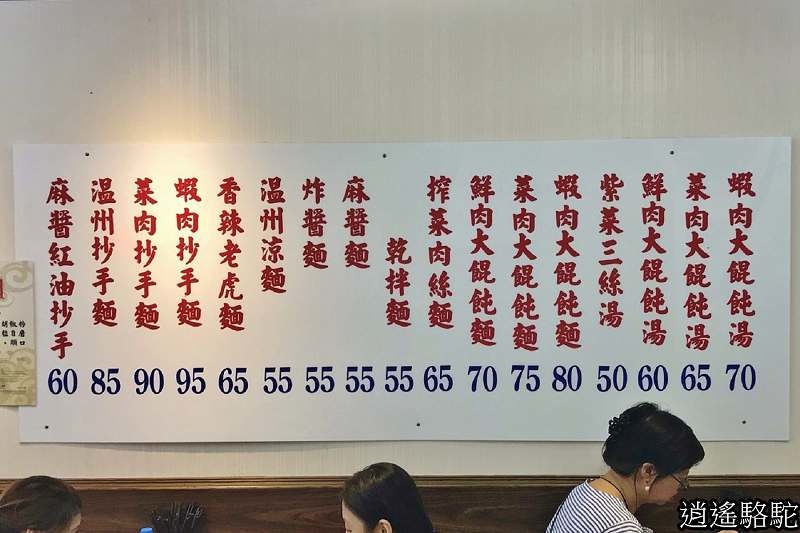 蝦肉大餛飩湯 70
菜肉大餛飩湯 65
鮮肉大餛飩湯 60
紫菜三絲湯 50
蝦肉大餛飩麵 80
菜肉大餛飩麵 75
鮮肉大餛飩麵 70
搾菜肉絲麵 65
乾拌麵 55
麻醬麵 55
炸醬麵 55
温州涼麵 55
香辣老虎麵 65
蝦肉抄手麵 95
菜肉抄手麵 90
温州抄手麵 85
麻醬紅油抄手 60
逍遙駱駝